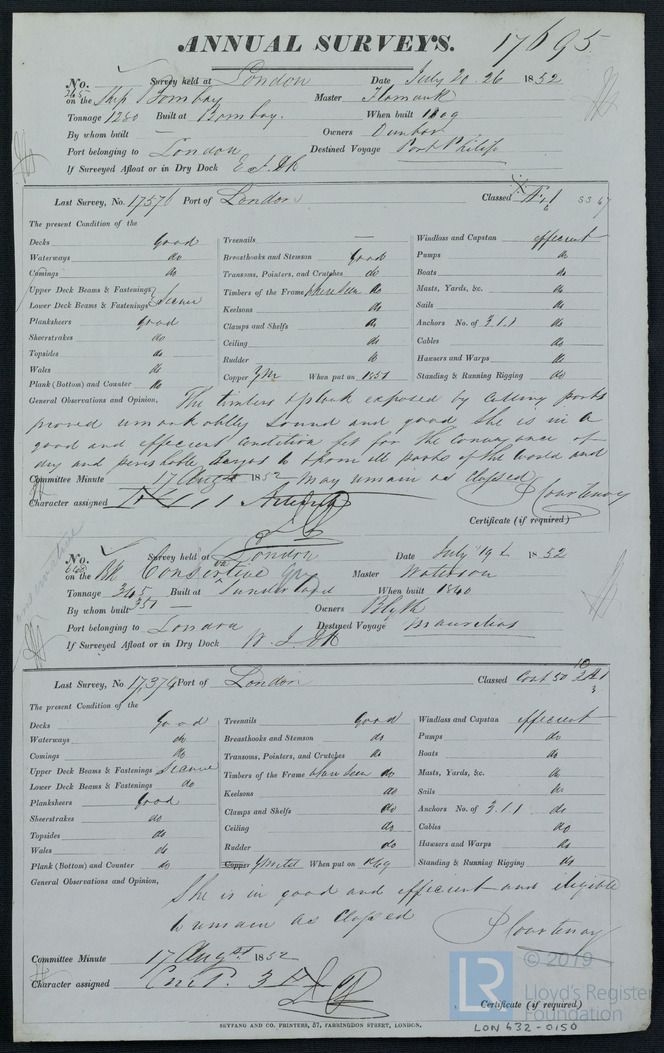 ANNUAL SURVEYS. 17695
No. Survey held at London Date July 20. 26 1852
on the Ship Bombay Master Flamank
Tonnage 1280 Built at Bombay. When built 1809
By whom built — Owners Dunbar
Port belonging to London Destined Voyage Port Philip
If Surveyed Afloat or in Dry Dock
Last Survey, No. 17576 Port of London Classed
The present Condition of the
Decks good
Waterways do
Comings do
Upper Deck Beams & Fastenings
Lower Deck Beams & Fastenings
Planksheers good
Sheerstrakes do
Topsides do
Wales do
Plank (Bottom) and Counter do
Treenails —
Breasthooks and Stemson good
Transoms, Pointers, and Crutches do
Timbers of the Frame where seen do
Keelsons do
Clamps and Shelfs do
Ceiling do
Rudder do
Copper YM When put on 1851
Windlass and Capstan efficient
Pumps do
Boats do
Masts, Yards, &c. do
Sails do
Anchors No. of 3.1.1 do
Cables do
Hawsers and Warps do
Standing & Running Rigging do
General Observations and Opinion, The timbers & plank exposed by cutting ports
proved remarkably sound and good She is in a
good and efficient condition fit for the conveyance of
dry and perishable cargos to & from all parts of the world and
Committee Minute 17 August 1852 may remain as classed
Character assigned Courtenay
Certificate (if required)
No. Survey held at London Date July 19 1852
on the Bk Master
Tonnage 345 Built at Sunderland When built 1840
By whom built 351 — Owners Blyth
Port belonging to London Destined Voyage Mauritius
If Surveyed Afloat or in Dry Dock
Last Survey, No. 17,374 Port of London Classed Cont 50
The present Condition of the
Decks Good
Waterways do
Comings do
Upper Deck Beams & Fastenings
Lower Deck Beams & Fastenings do
Planksheers good
Sheerstrakes do
Topsides do
Wales do
Plank (Bottom) and Counter do
Treenails Good
Breasthooks and Stemson do
Transoms, Pointers, and Crutches do
Timbers of the Frame where seen do
Keelsons do
Clamps and Shelfs do
Ceiling do
Rudder do
Copper Y Metal When put on 1849
Windlass and Capstan efficient
Pumps do
Boats do
Masts, Yards, &c. do
Sails do
Anchors No. of 3.1.1 do
Cables do
Hawsers and Warps do
Standing & Running Rigging do
General Observations and Opinion,
She is in good and efficient and eligible
to remain as classed Courtenay
Committee Minute 17 August 1852
Character assigned
Certificate (if required)
SEYFANG AND CO. PRINTERS, 57, FARRINGDON STREET, LONDON.
LR © 2019
Lloyd's Register
Foundation
LON 632-0150